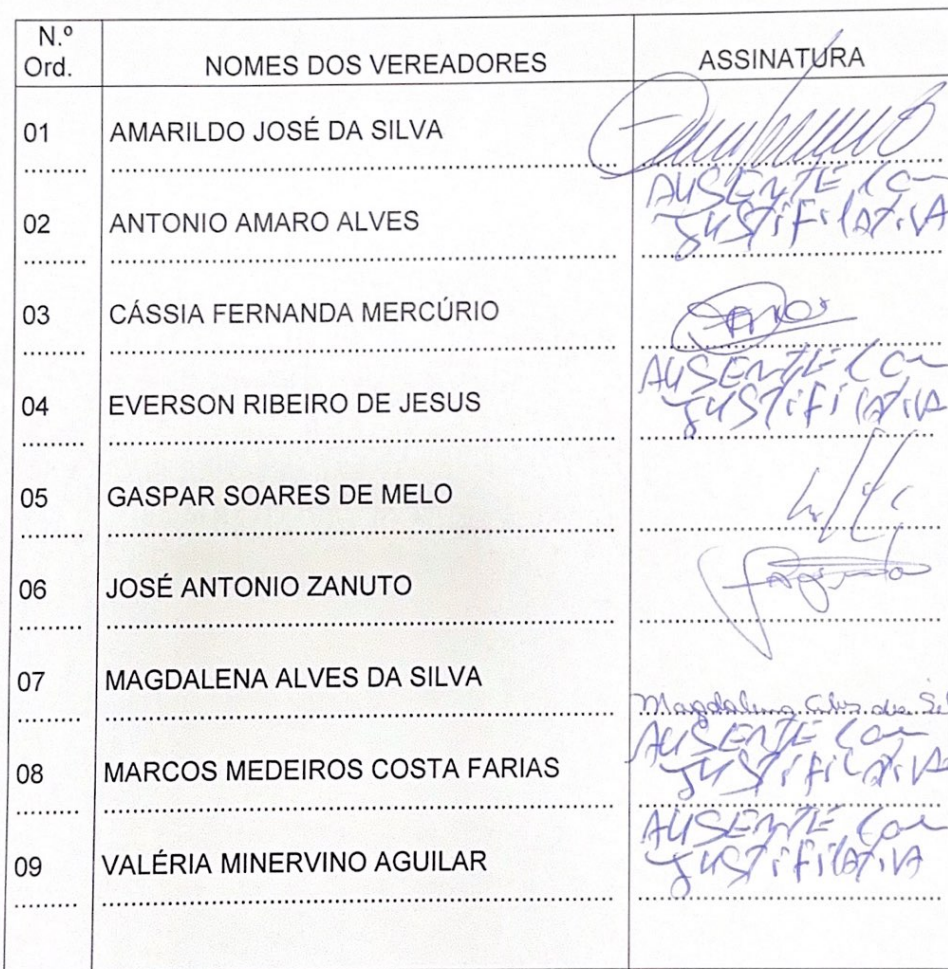 N.º
Ord.
NOMES DOS VEREADORES
ASSINATURA
01 AMARILDO JOSÉ DA SILVA
02 ANTONIO AMARO ALVES AUSENTE COM
JUSTIFICATIVA
03 CÁSSIA FERNANDA MERCÚRIO
04 EVERSON RIBEIRO DE JESUS AUSENTE COM
JUSTIFICATIVA
05 GASPAR SOARES DE MELO
06 JOSÉ ANTONIO ZANUTO
07 MAGDALENA ALVES DA SILVA
Magdalena Alves da Sil
08 MARCOS MEDEIROS COSTA FARIAS AUSENTE COM
JUSTIFICATIVA
09 VALÉRIA MINERVINO AGUILAR AUSENTE COM
JUSTIFICATIVA